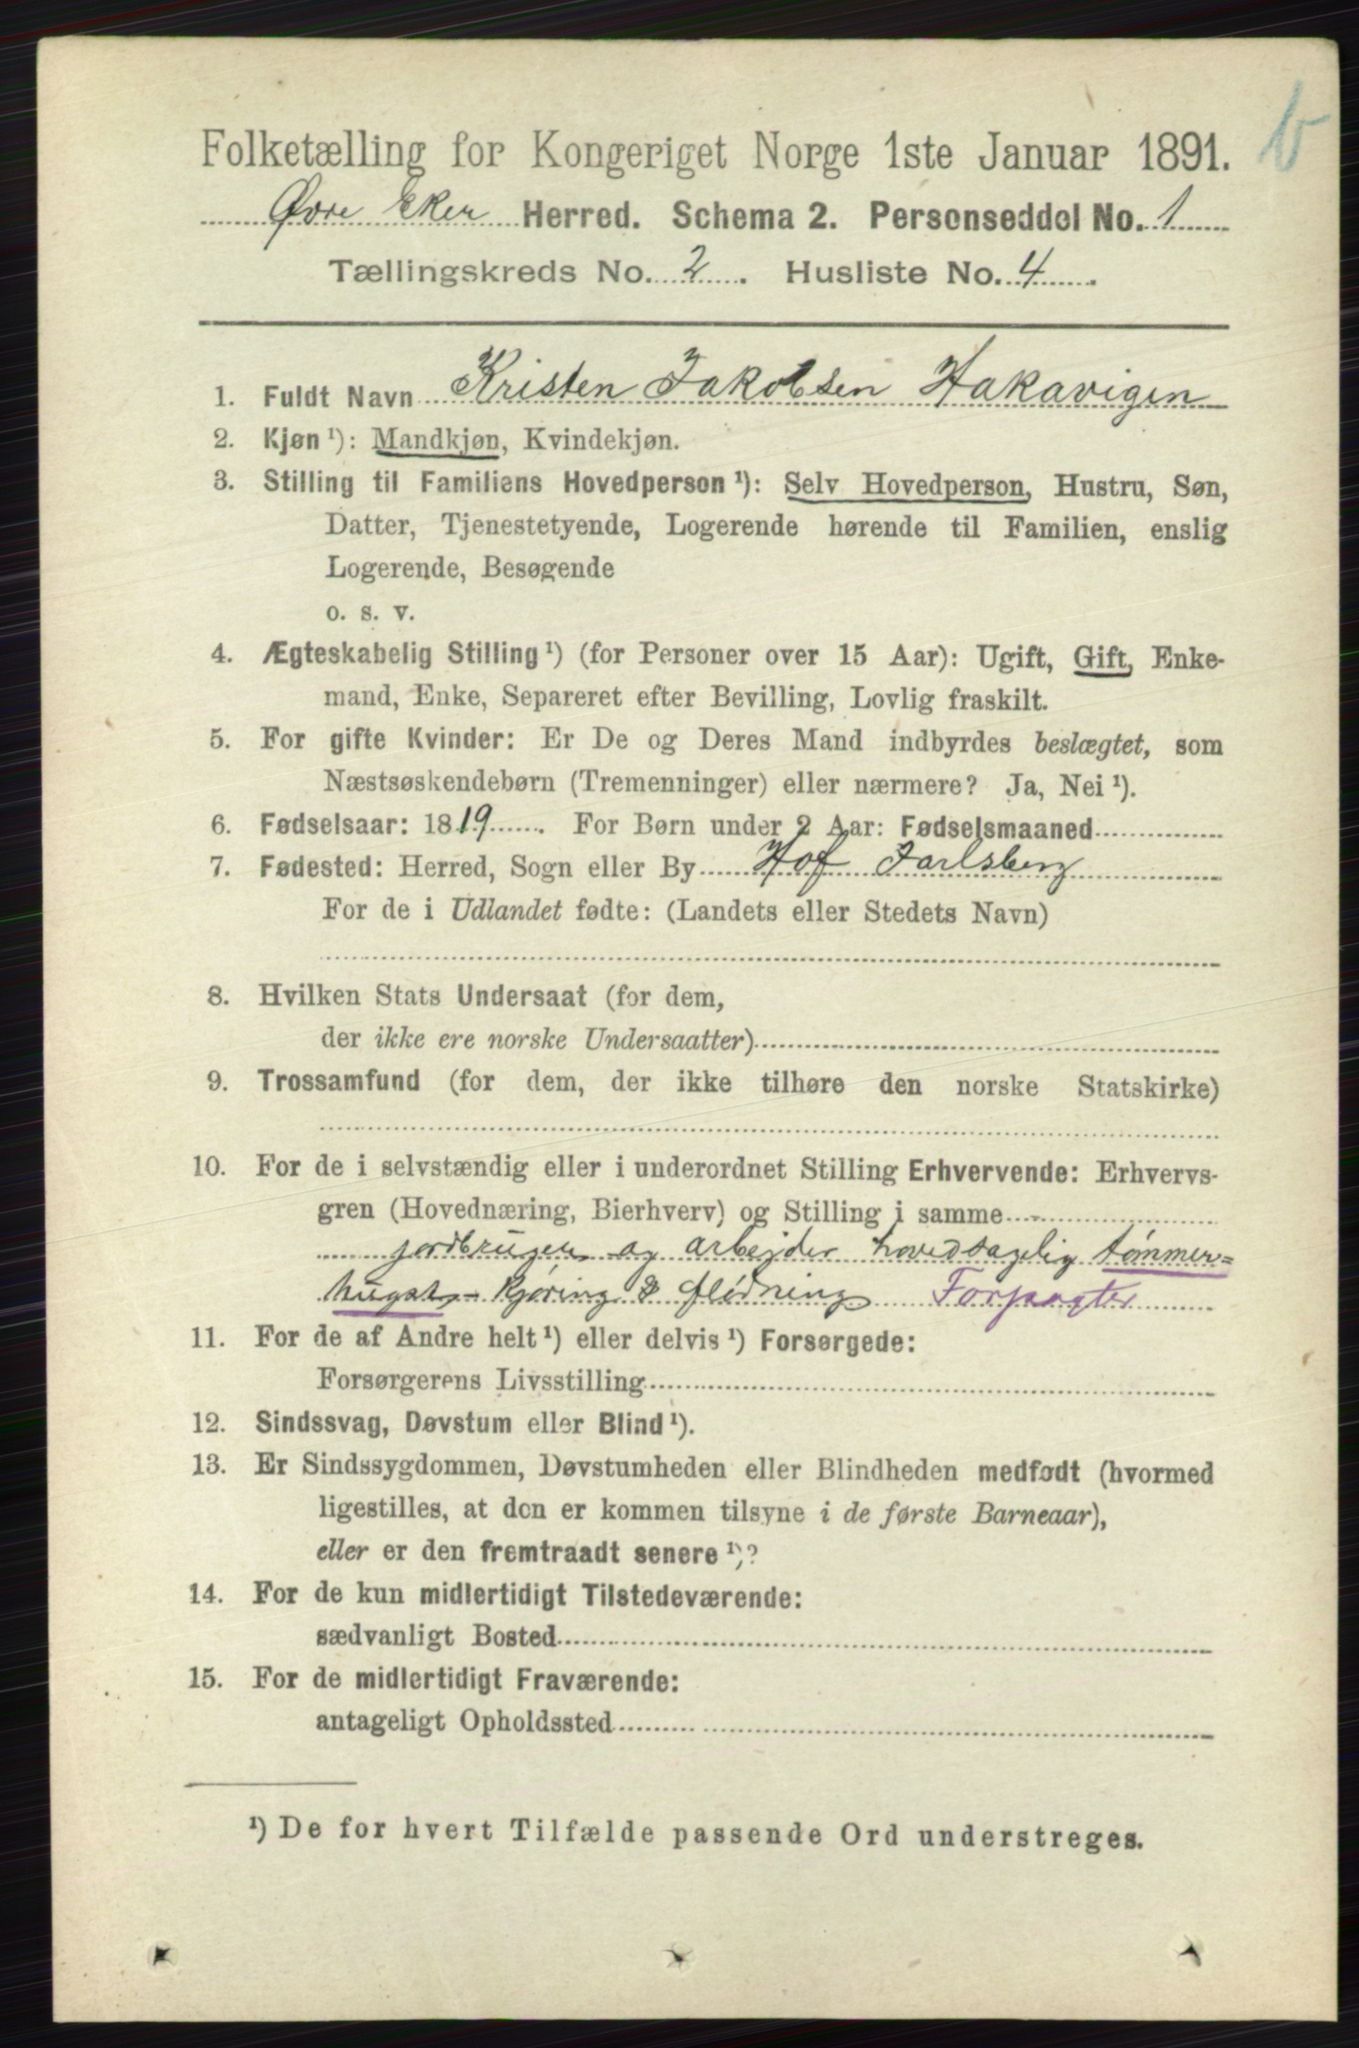 b
Folketælling for Kongeriget Norge 1ste Januar 1891.
Øvre Eker Herred. Schema 2. Personseddel No. 1
Tællingskreds No. 2. Husliste No. 4.
1. Fuldt Navn Kristen Jakobsen Hakavigen
2. Kjøn ¹): Mandkjøn, Kvindekjøn.
3. Stilling til Familiens Hovedperson ¹): Selv Hovedperson, Hustru, Søn,
Datter, Tjenestetyende, Logerende hørende til Familien, enslig
Logerende, Besøgende
o. s. v.
4. Ægteskabelig Stilling ¹) (for Personer over 15 Aar): Ugift, Gift, Enke-
mand, Enke, Separeret efter Bevilling, Lovlig fraskilt.
5. For gifte Kvinder: Er De og Deres Mand indbyrdes beslægtet, som
Næstsøskendebørn (Tremenninger) eller nærmere? Ja, Nei ¹).
6. Fødselsaar: 1819. For Børn under 2 Aar: Fødselsmaaned
7. Fødested: Herred, Sogn eller By Hof Jarlsberg
For de i Udlandet fødte: (Landets eller Stedets Navn)
8. Hvilken Stats Undersaat (for dem,
der ikke ere norske Undersaatter)
9. Trossamfund (for dem, der ikke tilhøre den norske Statskirke)
10. For de i selvstændig eller i underordnet Stilling Erhvervende: Erhvervs-
gren (Hovednæring, Bierhverv) og Stilling i samme -
jordbruger og arbejder hovedsagelig tømmer=
hugst - kjøring & flødning Forpagter
11. For de af Andre helt ¹) eller delvis ¹) Forsørgede:
Forsørgerens Livsstilling
12. Sindssvag, Døvstum eller Blind ¹).
13. Er Sindssygdommen, Døvstumheden eller Blindheden medfødt (hvormed
ligestilles, at den er kommen tilsyne i de første Barneaar),
eller er den fremtraadt senere ¹)?
14. For de kun midlertidigt Tilstedeværende:
sædvanligt Bosted
15. For de midlertidigt Fraværende:
antageligt Opholdssted
¹) De for hvert Tilfælde passende Ord understreges.